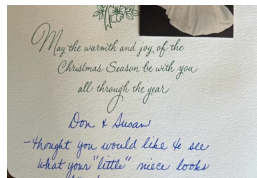 May the warmth and joy of the
Christmas Season be with you
all through the year
Don & Susan
-thought you would like to see
what your "little" niece looks